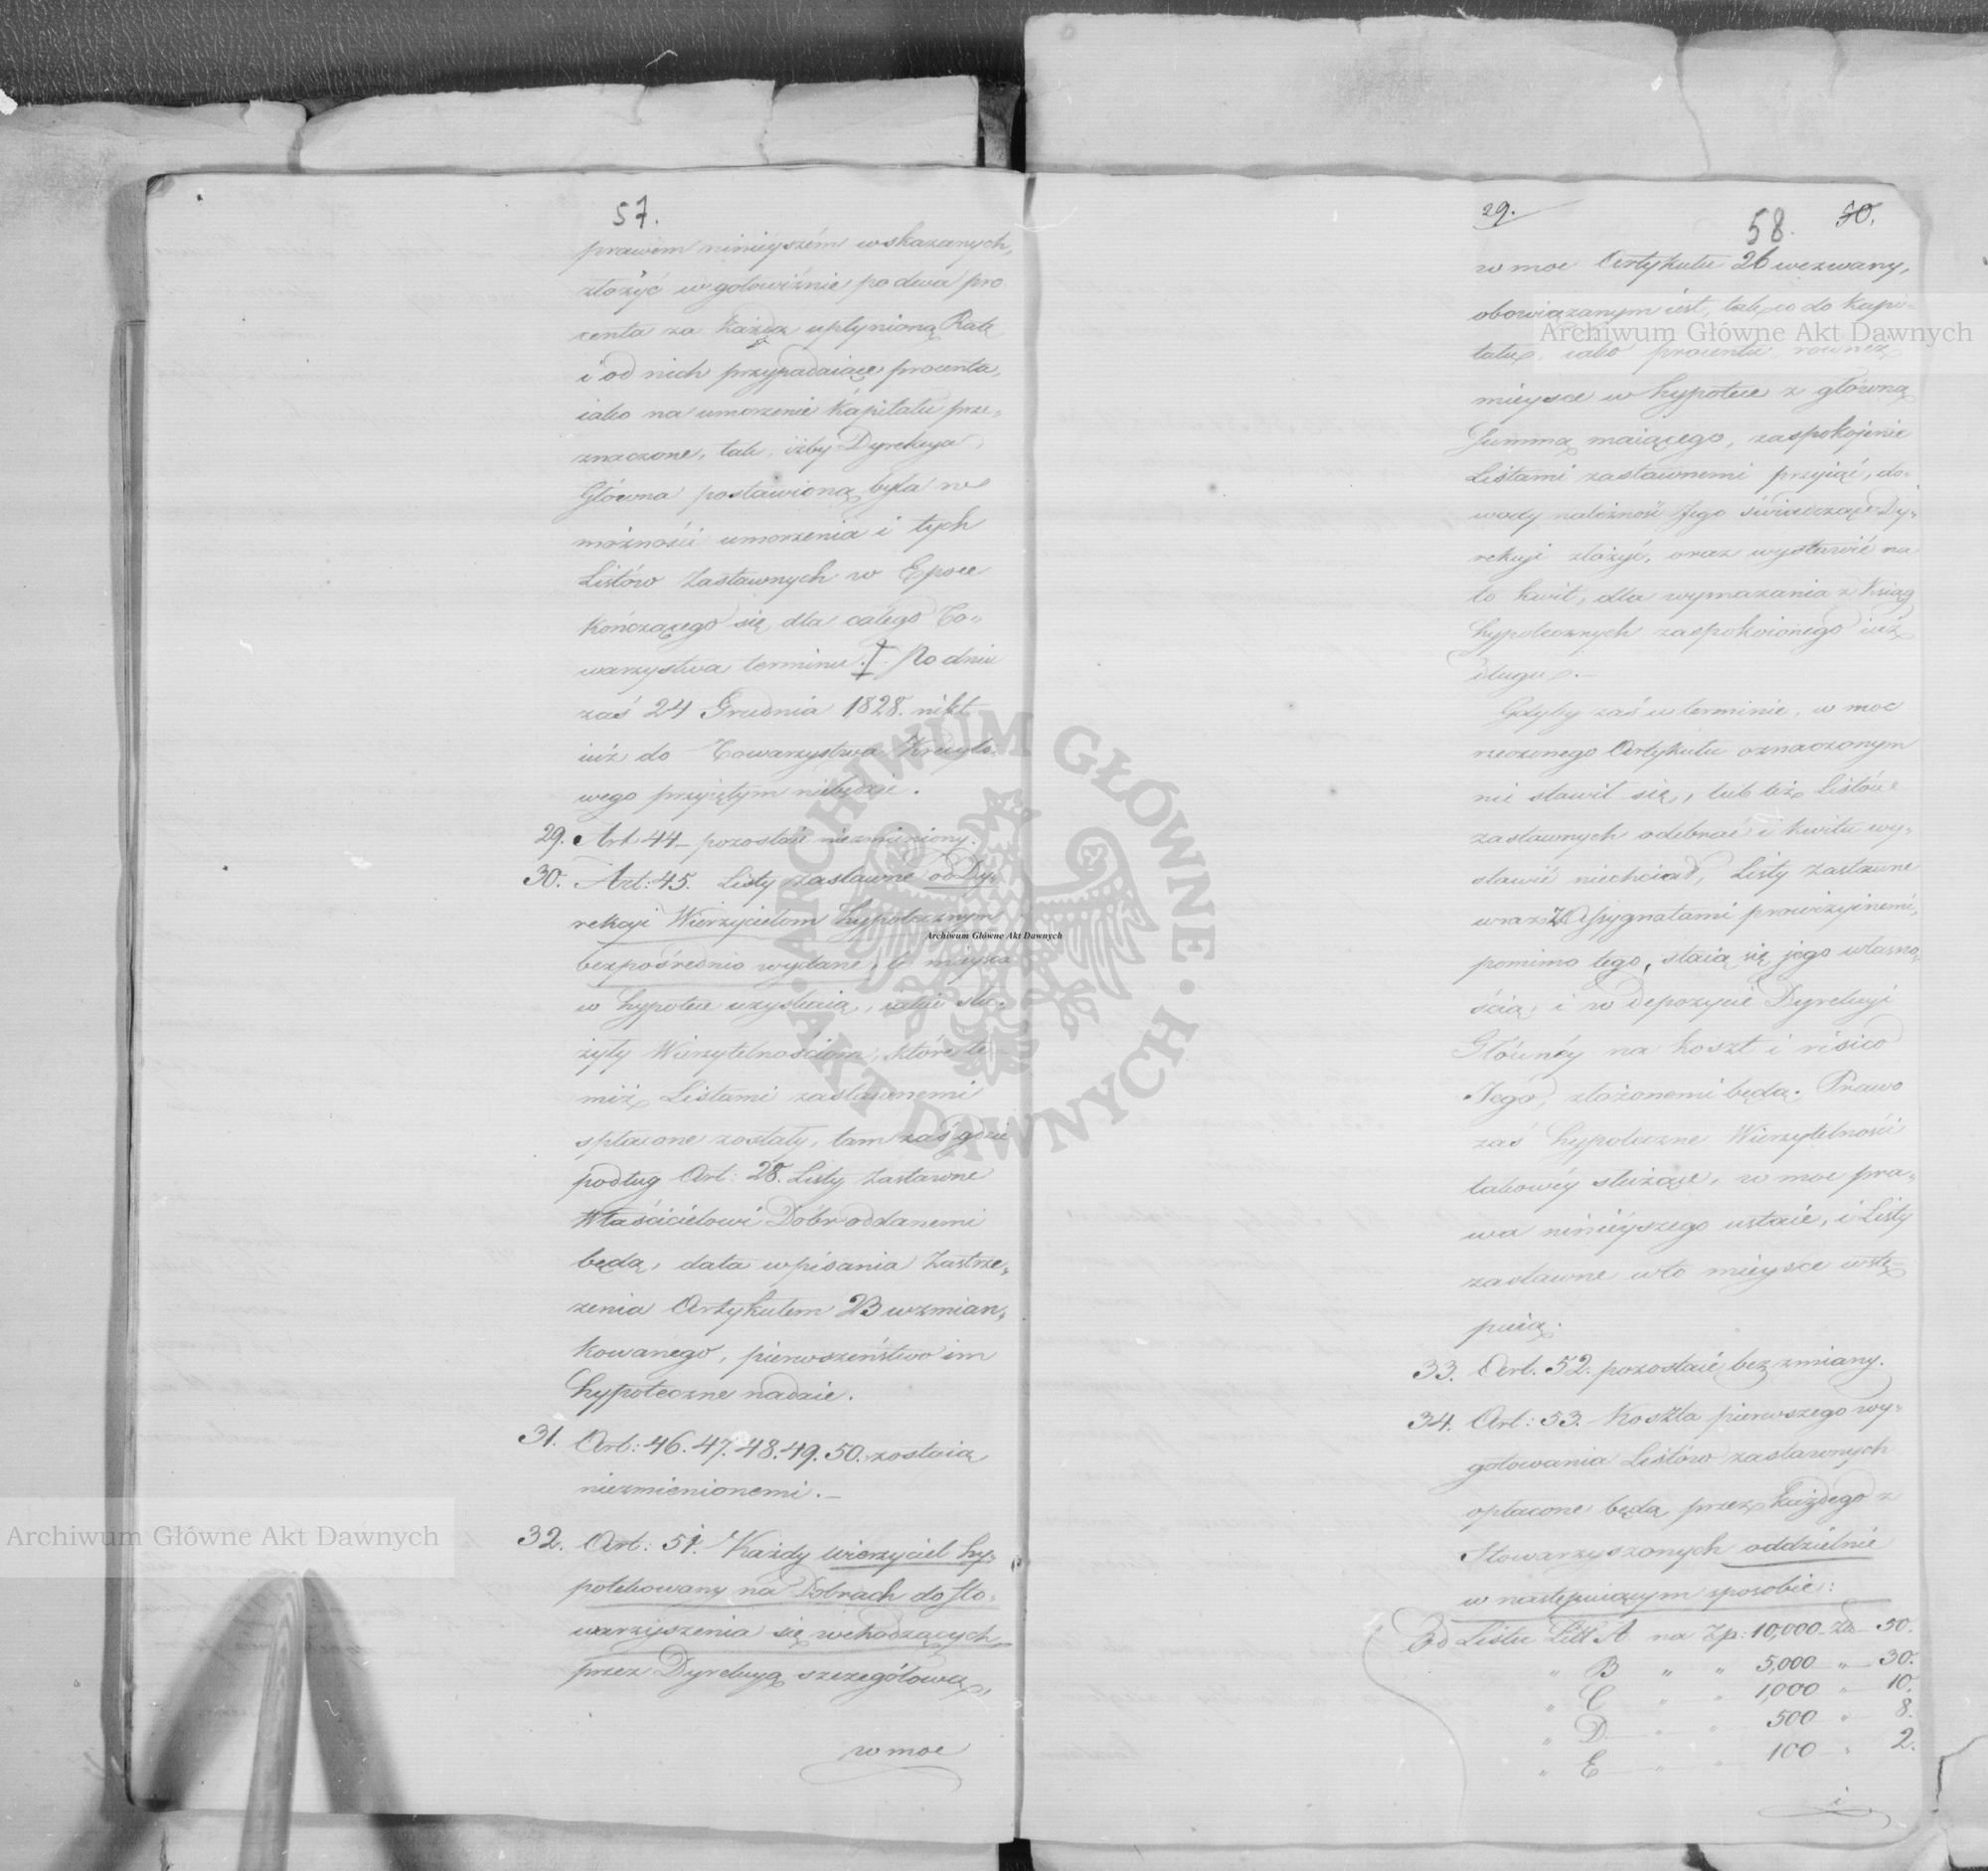 57.
prawem ninieyszém wskazanych,
złożyć w gotowiźnie, po dwa pro
centa za każdą upłynioną Ratę
i od nich przypadaiące procenta,
iako na umorzenie Kapitału prze-
znaczone, tak, iżby Dyrekcya
Główna postawioną była w
możności umorzenia i tych
Listów Zastawnych w Epoce
kończącego się dla całego To-
warzystwa terminu. Po dniu
zaś 24 Grudnia 1828. nikt
iuż do Towarzystwa Kredyto
wego przyiętym niebędzie.
29. Art 44 – pozostaie niezmieniony.
30. Art: 45. Listy zastawne od Dy-
rekcyi Wierzycielom hypotecznym
bezpośrednio wydane, te mieysca
w hypotece uzyskaią, iakie słu-
żyły Wierzytelnościom, które te-
miż Listami zastawnemi
spłacone zostały, tam zaś gdzie
podług Art: 28. Listy Zastawne
Właścicielowi Dóbr oddanemi
będą, data wpisania Zastrze-
żenia Artykułem 23 wzmian-
kowanego, pierwszeństwo im
hypoteczne nadaie.
31. Art: 46. 47. 48. 49. 50. zostaią
niezmienionemi. –
32. Art: 51. Każdy wierzyciel hy-
potekowany na Dobrach do Sto-
warzyszenia się wchodzących
przez Dyrekcyą szczegółową,
w moc
29. 58. 50.
w moc Artykułu 26 wezwany,
obowiązanym iest, tak co do Kapi-
tału, iako procentu, rowneż
mieysce w hypotece z główną
Summą maiącego, zaspokojenie
Listami zastawnemi przyiąć, do-
wody należność Jego świadczące Dy-
rekcyi złożyć, oraz wystawić na
to kwit, dla wymazania z Ksiąg
hypotecznych zaspokoionego iuż
długu. –
Gdyby zaś w terminie, w moc
rzeczonego Artykułu oznaczonym
nie stawił się, lub też Listów
zastawnych odebrać i kwitu wy-
stawić niechciał, Listy Zastawne
wraz z Assygnatami prowizyinemi,
pomimo tego, staią się jego własno-
ścią, i w depozycie Dyrekcyi
Główney na koszt i risico
Jego, złożonemi będą. Prawo
zaś hypoteczne Wierzytelności
takowéy służące, w moc pra-
wa ninieyszego ustaie, i Listy
zastawne w to mieysce wstę-
puią.
33. Art. 52. pozostaie bez zmiany.
34. Art: 53. Koszta pierwszego wy-
gotowania Listów zastawnych
opłacone będą przez każdego z
Stowarzyszonych oddzielnie
w następuiącym sposobie:
Od Listu Litt A na Zp: 10,000 – Zł – 50.
" B " " 5,000 " – 30.
" C " " 1,000 " – 10.
" D " " 500 " – 8.
" E " " 100 " 2.
i
Archiwum Główne Akt Dawnych
Archiwum Główne Akt Dawnych
Archiwum Główne Akt Dawnych
ARCHIWUM GŁÓWNE AKT DAWNYCH